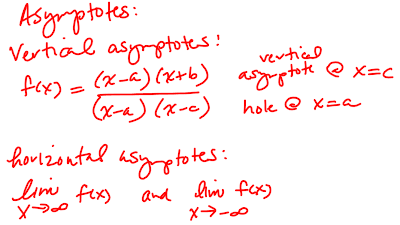 Asymptotes:
Vertical asymptotes:
f(x) = (x-a)(x+b) / (x-a)(x-c)
vertical
asymptote @ x=c
hole @ x=a
horizontal asymptotes:
lim f(x) and lim f(x)
x→∞ x→-∞